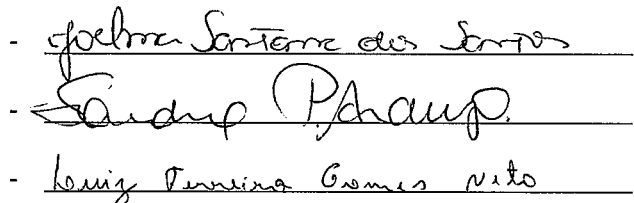 - Joelma Santana dos Santos
- Sandra P. Araujo.
- Luiz Ferreira Gomes Neto